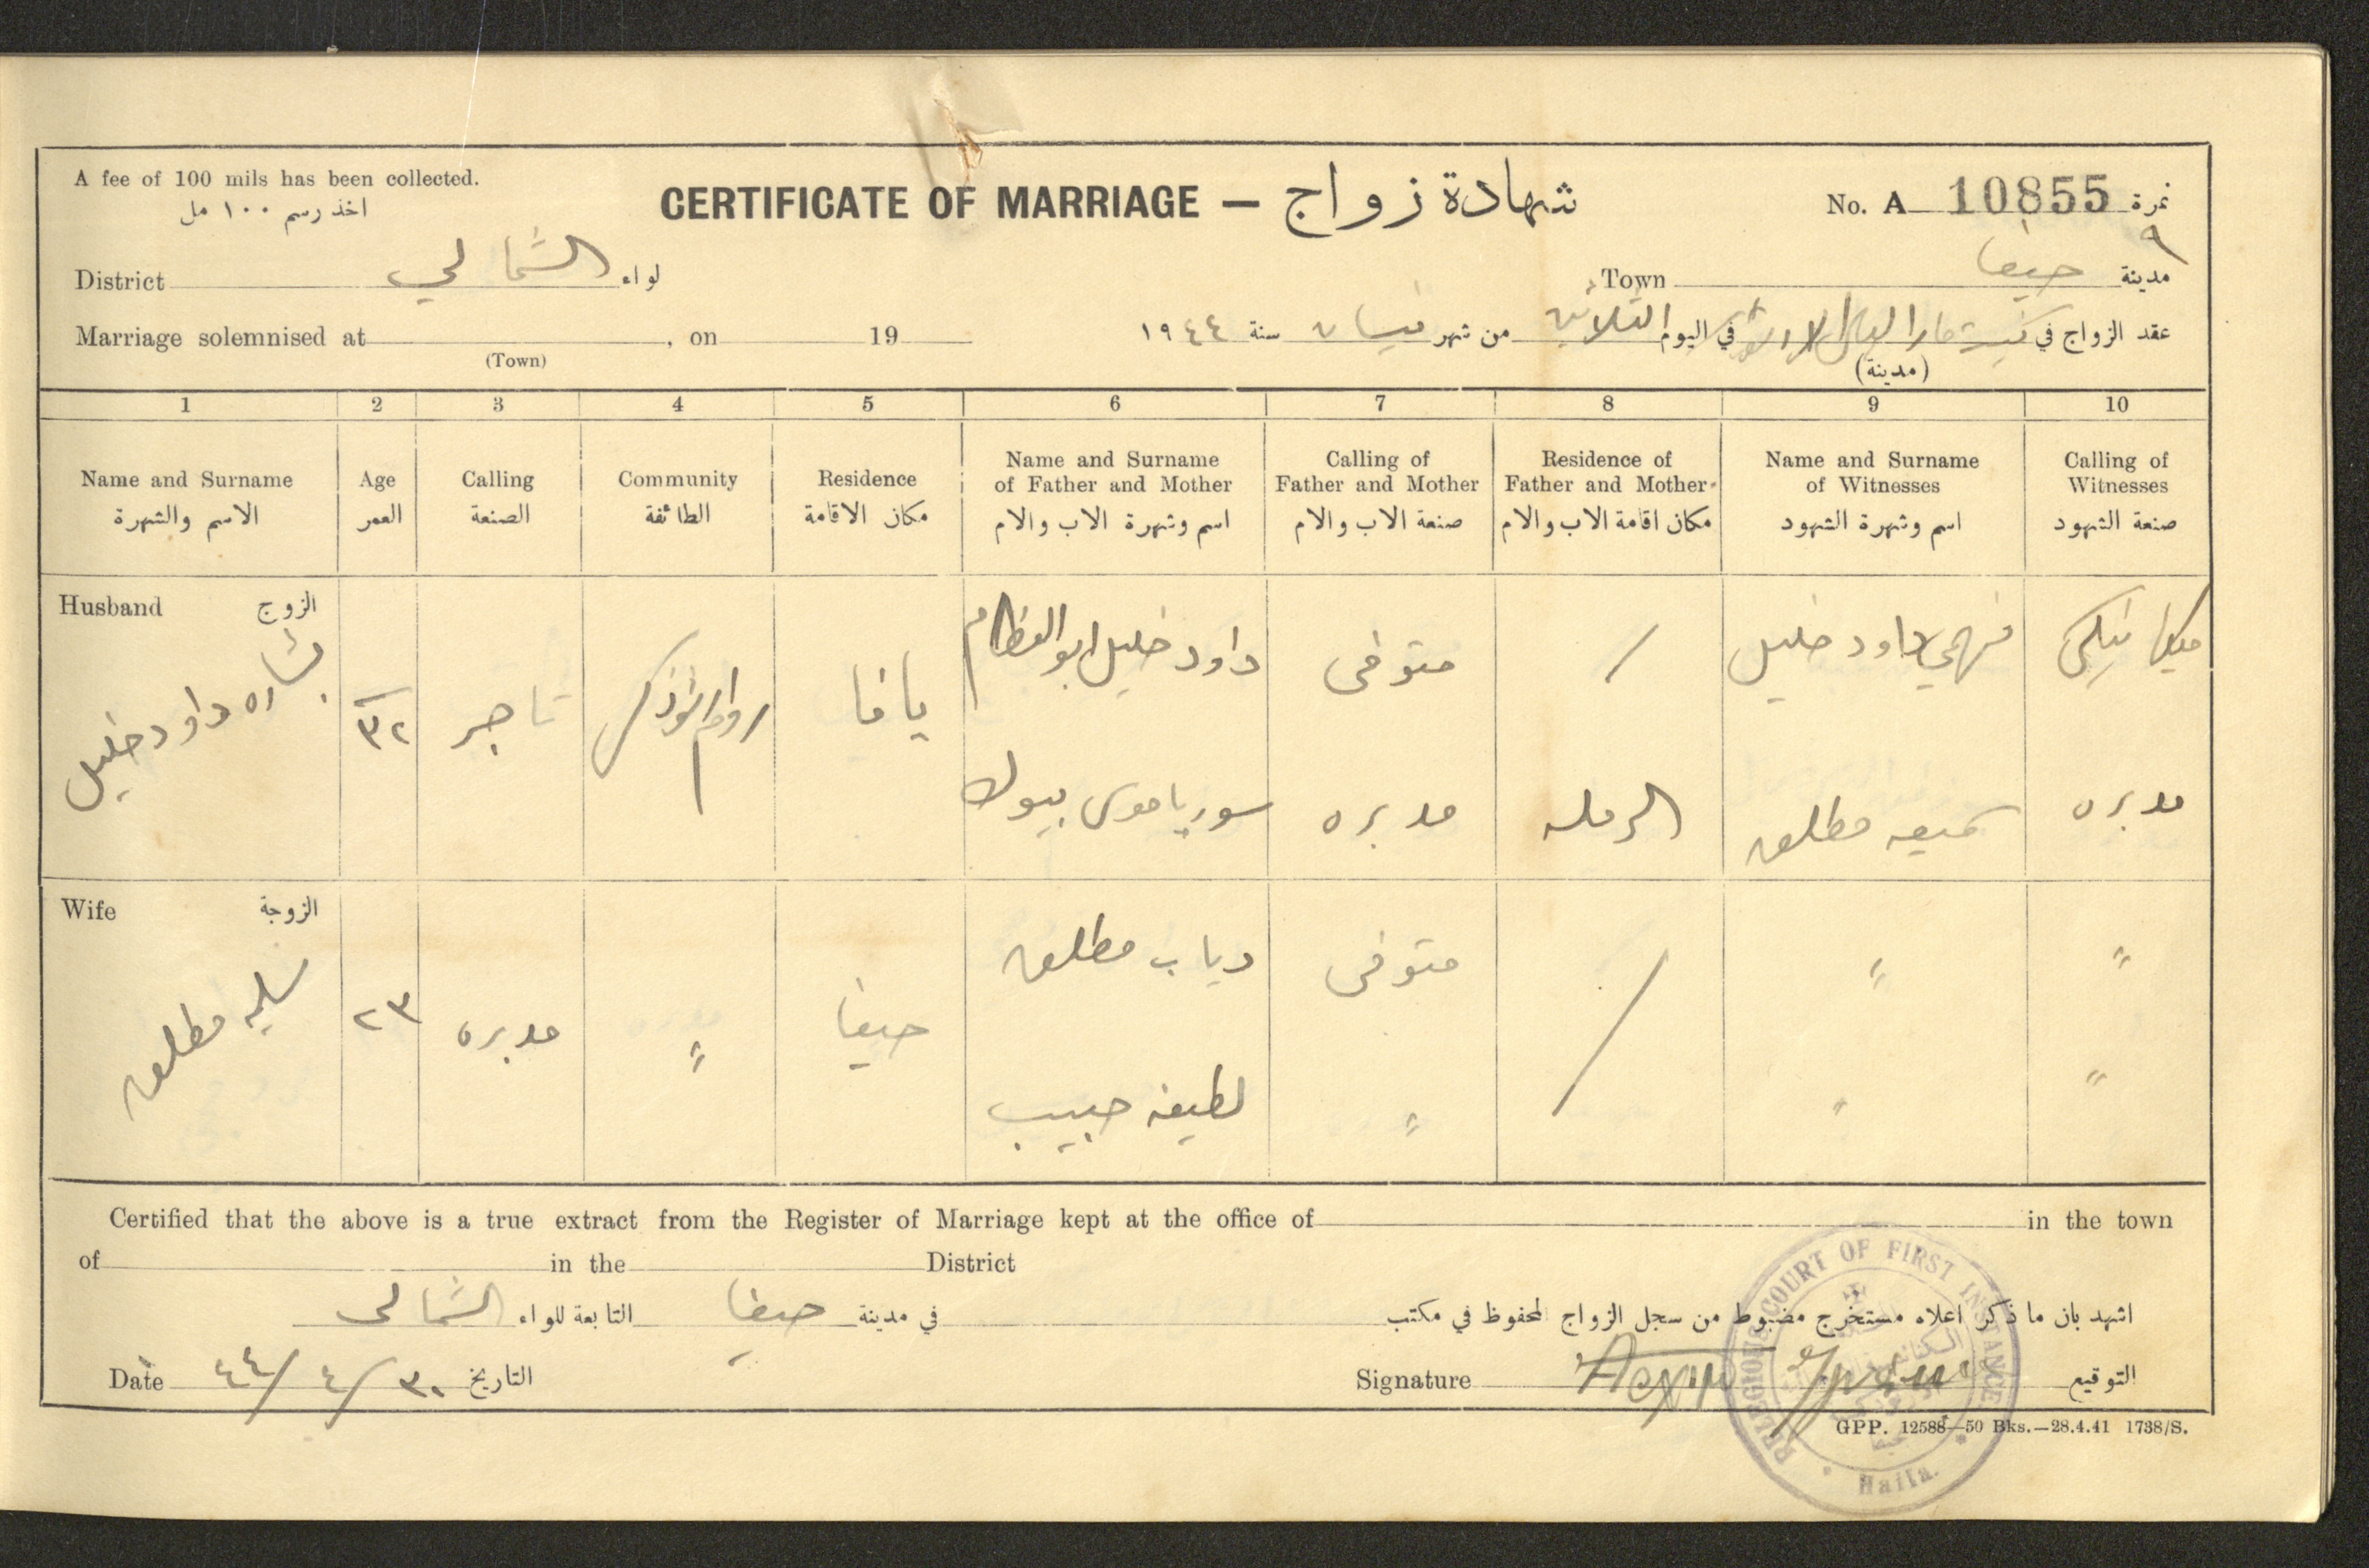 A fee of 100 mils has been collected.
اخذ رسم ١٠٠ مل
CERTIFICATE OF MARRIAGE — شهادة زواج
No. A 10855 نمرة
٩
District الشمالي لواء
Town حيفا مدينة
Marriage solemnised at , on 19
(Town)
عقد الزواج في كنيسة مار الياس في اليوم الثلاثين من شهر نيسان سنة ١٩٤٤
(مدينة)
1 2 3 4 5 6 7 8 9 10
Name and Surname
الاسم والشهرة
Age
العمر
Calling
الصنعة
Community
الطائفة
Residence
مكان الاقامة
Name and Surname
of Father and Mother
اسم وشهرة الاب والام
Calling of
Father and Mother
صنعة الاب والام
Residence of
Father and Mother
مكان اقامة الاب والام
Name and Surname
of Witnesses
اسم وشهرة الشهود
Calling of
Witnesses
صنعة الشهود
Husband الزوج
بشاره داود خليل
٣٢
تاجر
روم ارثوذكس
يافا
داود خليل ابو العظام
متوفى
/
فهمي داود خليل
ميكانيكي
موسى
مدبره
الرمله
سميعه مطلق
مدبره
Wife الزوجة
سليمه مطلق
٢٣
مدبره
"
حيفا
دياب مطلق
متوفى
/
"
"
لطيفه حبيب
"
"
"
Certified that the above is a true extract from the Register of Marriage kept at the office of in the town
of in the District
اشهد بان ما ذكر اعلاه مستخرج مضبوط من سجل الزواج المحفوظ في مكتب في مدينة حيفا التابعة للواء الشمالي
Date ٣٠/٤/٤٤ التاريخ
Signature التوقيع
RELIGIOUS COURT OF FIRST INSTANCE
Haifa.
GPP. 12588—50 Bks.—28.4.41 1738/S.